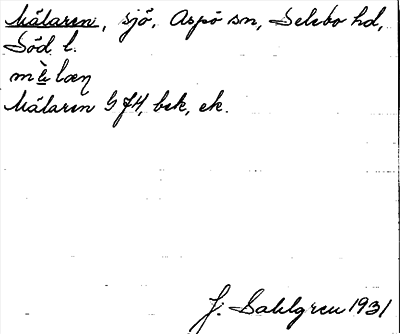 Mälaren, sjö, Aspö sn, Selebo hd,
Söd. l.
Mälaren GFH, bek, ek.
J. Sahlgren 1931